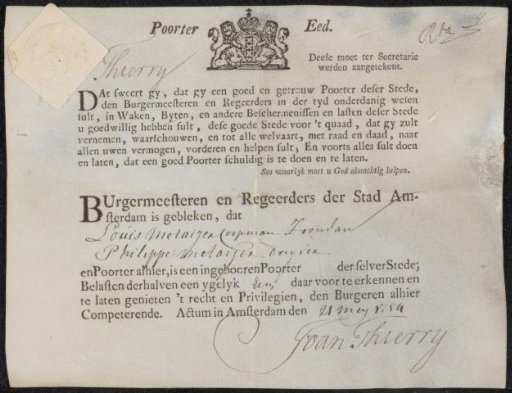 Poorter Eed.
Rda
Deese moet ter Secretarie
werden aangetekent.
Thierry
DAt sweert gy, dat gy een goed en getrouw Poorter deser Stede,
den Burgermeesteren en Regeerders in der tyd onderdanig wesen
sult, in Waken, Byten, en andere Beschermenissen en lasten deser Stede
u goedwillig hebben sult, dese goede Stede voor 't quaad, dat gy zult
vernemen, waarschouwen, en tot alle welvaart, met raad en daad, naar
allen uwen vermogen, vorderen en helpen sult, En voorts alles sult doen
en laten, dat een goed Poorter schuldig is te doen en te laten.
Soo waarlyk moet u God almachtig helpen.
BUrgermeesteren en Regeerders der Stad Am-
sterdam is gebleken, dat
Louis Metaijer Zoon van
Philippe Metaijer
en Poorter alhier, is een ingebooren Poorter der selver Stede;
Belasten derhalven een ygelyk hem daar voor te erkennen en
te laten genieten 't recht en Privilegien, den Burgeren alhier
Competerende. Actum in Amsterdam den 21 mey 1754
Joan Thierry